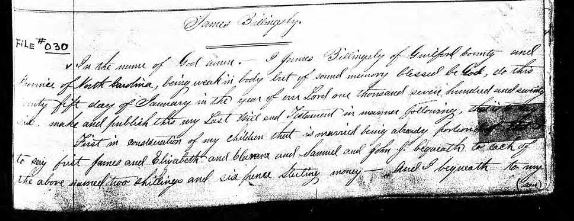 James Billingsly.
FILE # 030
In the name of God amen. I James Billingsly of Guilford County and
Province of North Carolina, being weak in body but of sound memory blessed be God, do this
twenty fifth day of January in the year of our Lord one thousand seven hundred and seventy
make and publish this my Last Will and Testament in manner following,
First in consideration of my children that is married being already portioned
to say first James and Elizabeth and and Samuel and John I bequeath to each of
the above named two shillings and six pence sterling money — And I bequeath to my